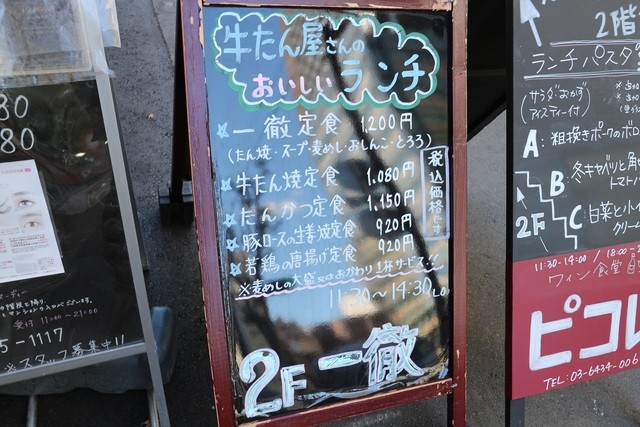 牛たん屋さんの
おいしいランチ
一徹定食 1,200円
(たん焼・スープ・麦めし・おしんこ・とろろ)
牛たん焼定食 1,080円
たんかつ定食 1,150円
豚ロースの生姜焼定食 920円
若鶏の唐揚げ定食 920円
税込価格です
※麦めしの大盛又はおかわり1杯サービス!!
11:30～14:30(LO)
2F 一徹
30
80
受付 11:00～21:00
5-1117
※スタッフ募集中!!
2階
ランチパスタ
(サラダ おかず
アイスティー付)
A: 粗挽きポークのボ
B: 冬キャベツと
トマト
C: 白菜と小
クリーム
2F
11:30-14:00/18:00-
ワイン食堂
ピコレ
TEL: 03-6434-006